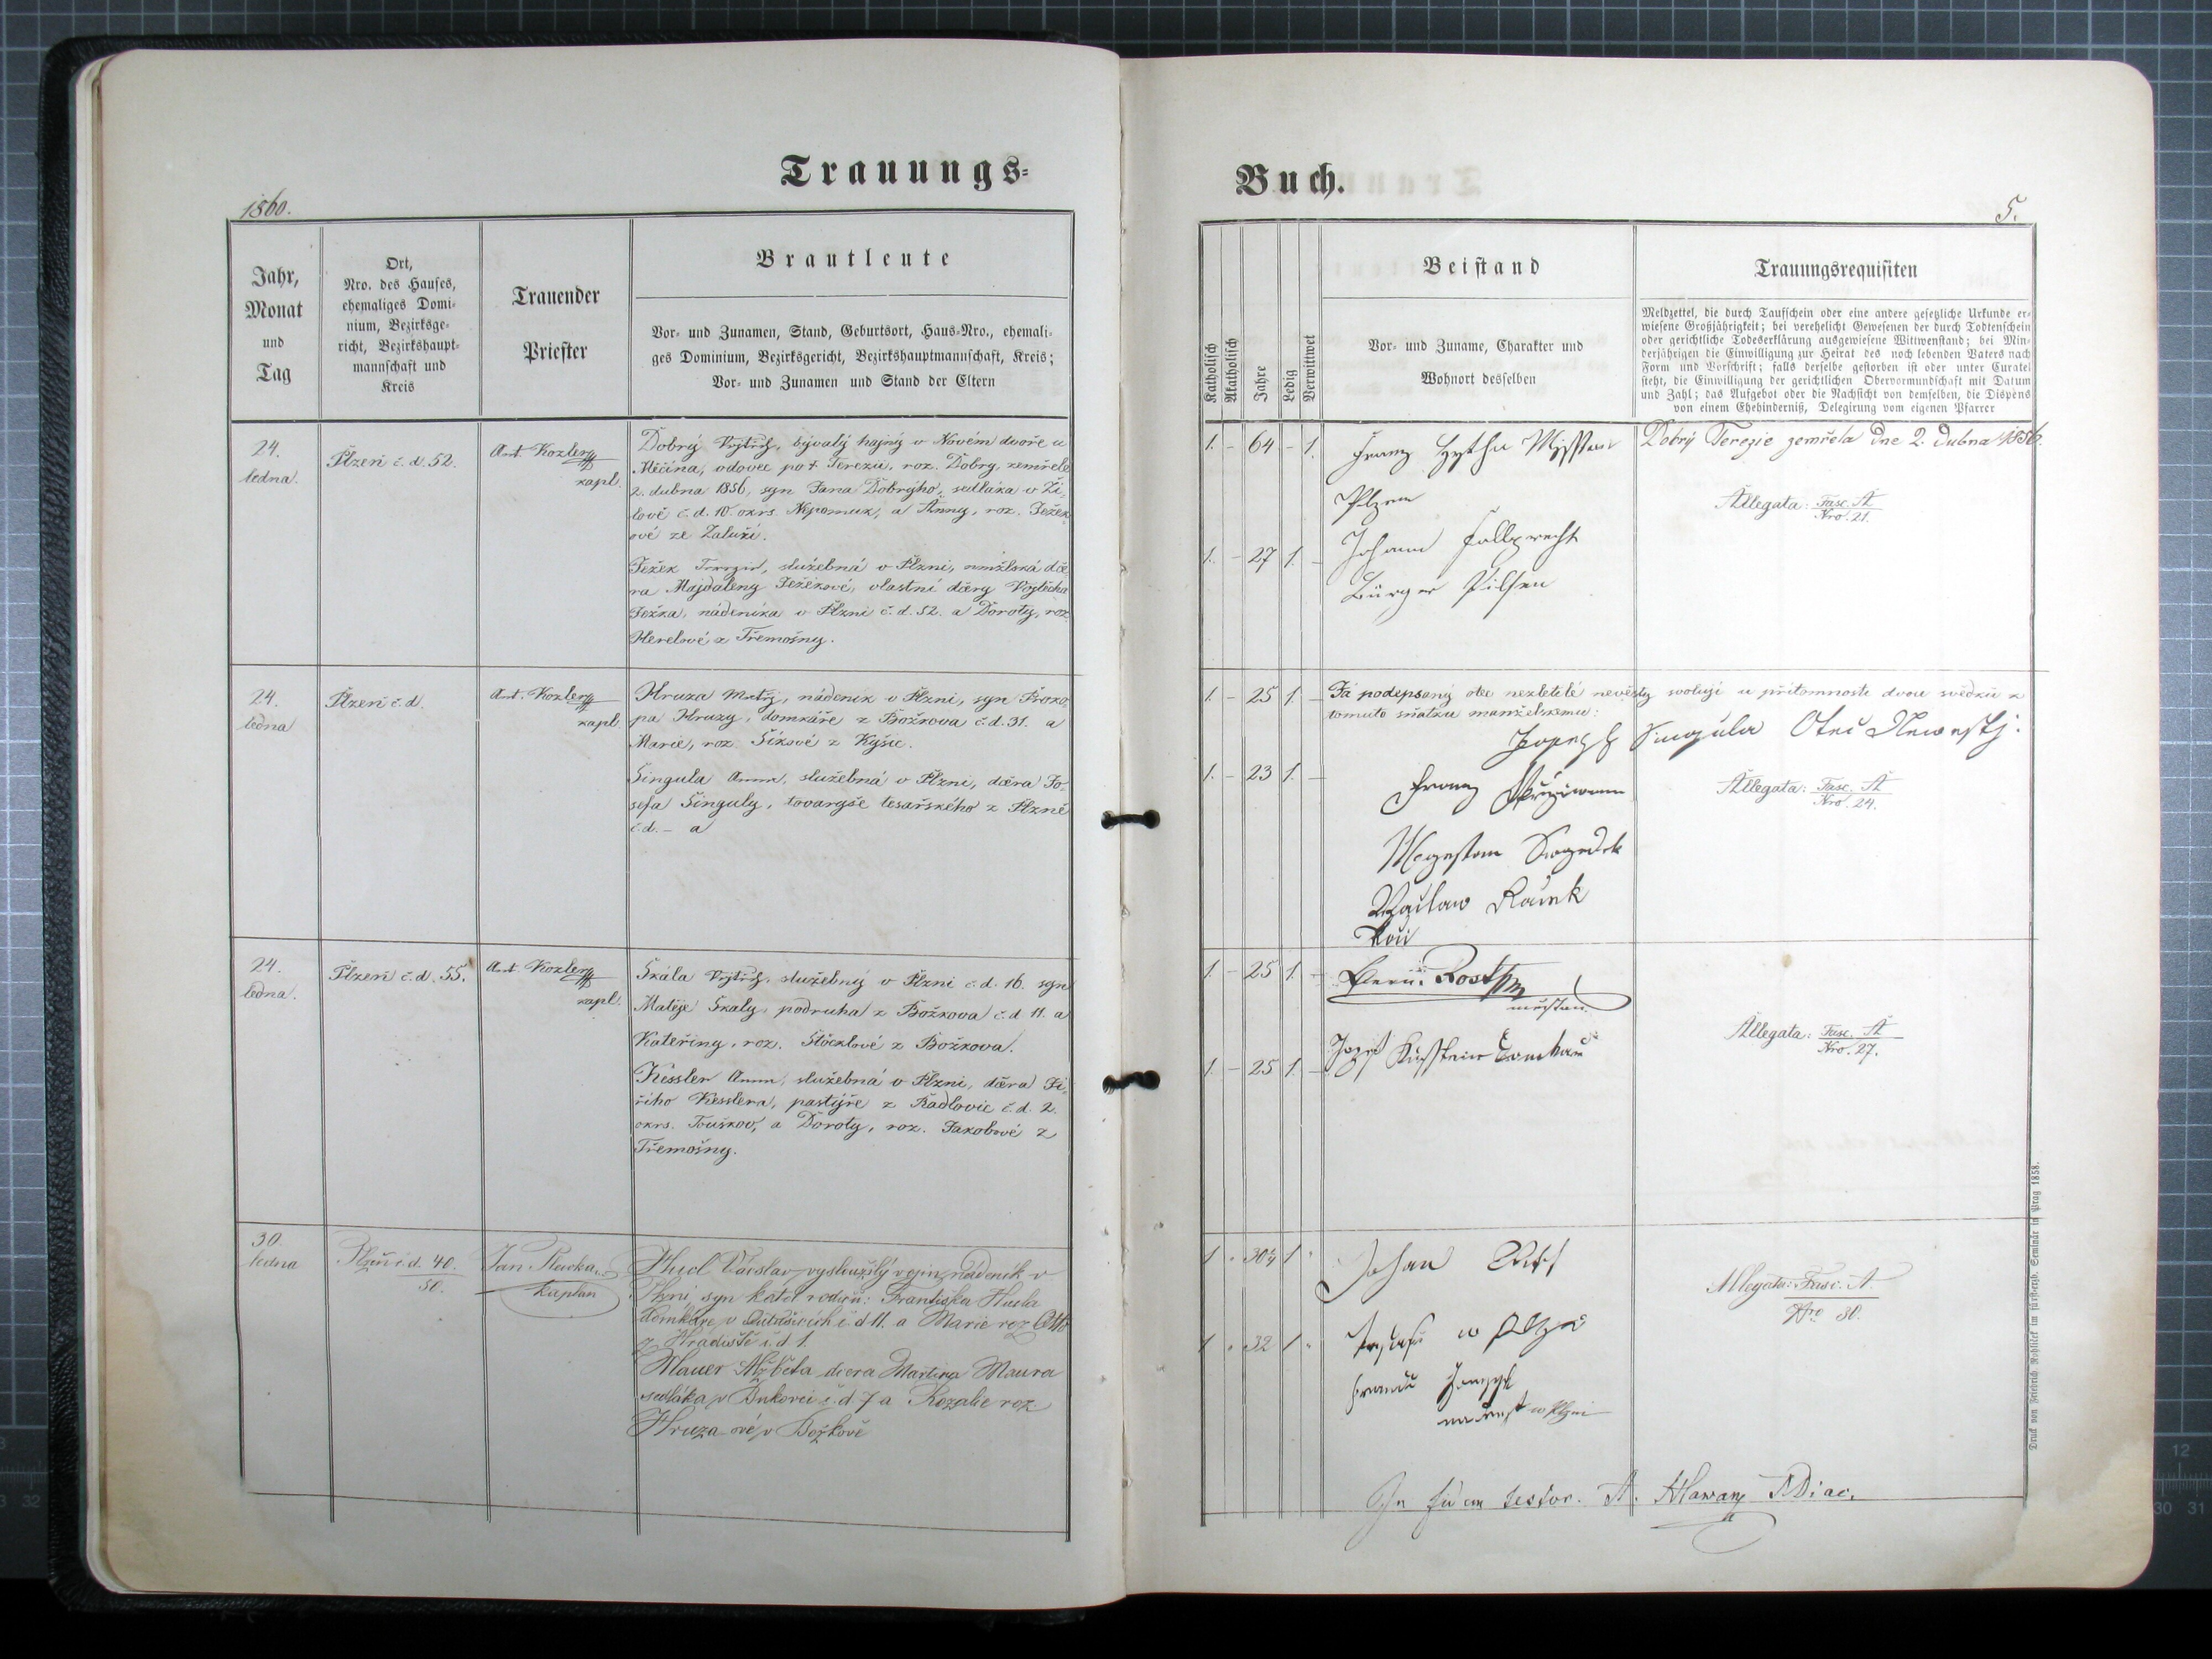 Trauungs-
1860.
Jahr,
Monat
und
Tag
Ort,
Nro. des Hauses,
ehemaliges Domi-
nium, Bezirksge-
richt, Bezirkshaupt-
mannschaft und
Kreis
Trauender
Priester
Brautleute
Vor- und Zunamen, Stand, Geburtsort, Haus-Nro., ehemali-
ges Dominium, Bezirksgericht, Bezirkshauptmannschaft, Kreis;
Vor- und Zunamen und Stand der Eltern
24.
ledna.
Plzeň č. d. 52.
Ant. Kozler
kapl.
Dobrý Vojtěch, bývalý hajný v Novém dvoře u
Měčína, vdovec po † Terezii, roz. Dobrý, zemřelé
2. dubna 1856, syn Jana Dobrýho, sedláka v Ži-
lově č. d. 10 okrs. Nepomuk, a Anny, roz. Ježek
ové ze Zaluží.
Ježek Terezie, služebná v Plzni, nemžlská dce-
ra Majdaleny Ježekové, vlastní dcery Vojtěcha
Ježka, nádeníka v Plzni č. d. 52. a Doroty, roz.
Herelové z Třemošny.
24.
ledna
Plzeň č. d.
Ant. Kozler
kapl.
Hruza Matěj, nádeník v Plzni, syn Proko-
pa Hruzy, domkáře z Božkova č. d. 31. a
Marie, roz. Šikové z Kyšic.
Singula Anna, služebná v Plzni, dcera Jo-
sefa Singuly, tovaryše tesařského z Plzně
č. d. – a
24.
ledna.
Plzeň č. d. 55.
Ant. Kozler
kapl.
Skála Vojtěch, služebný v Plzni č. d. 16. syn
Matěje Skaly, podruha z Božkova č. d. 11. a
Kateřiny, roz. Stöcklové z Božkova.
Kessler Anna, služebná v Plzni, dcera Ji-
řího Kesslera, pastýře z Radlovic č. d. 2.
okrs. Touškov, a Doroty, roz. Jakobové z
Třemošny.
30.
ledna
Plzň č. d. 40.
50.
Jan
kaplan
Hucl Václav vysloužilý vojín, nádeník v
Plzni, syn katol rodičů: Františka Hucla
domkáře v č. d 11. a Marie roz Otto
z Hradiště č. d 1.
Mauer Alžběta dcera Martina Maura
sedláka v Bukovci č. d 7 a Rozalie roz
Hruza-ové v Božkově
Buch.
5.
Katholisch
Akatholisch
Jahre
Ledig
Verwittwet
Beistand
Vor- und Zuname, Charakter und
Wohnort desselben
Trauungsrequisiten
Meldzettel, die durch Taufschein oder eine andere gesetzliche Urkunde er-
wiesene Großjährigkeit; bei verehelicht Gewesenen der durch Todtenschein
oder gerichtliche Todeserklärung ausgewiesene Wittwenstand; bei Min-
derjährigen die Einwilligung zur Heirat des noch lebenden Vaters nach
Form und Vorschrift; falls derselbe gestorben ist oder unter Curatel
steht, die Einwilligung der gerichtlichen Obervormundschaft mit Datum
und Zahl; das Aufgebot oder die Nachsicht von demselben, die Dispens
von einem Ehehinderniß, Delegirung vom eigenen Pfarrer
1. – 64 – 1.
Franz
Plzen
Dobrý Terezie zemřela dne 2. dubna 1856.
Allegata: Fasc. A
Nro. 21.
1. – 27 1. –
Johann
Bürger Pilsen
1. – 25 1. –
Já podepsaný otec nezletilé nevěsty svoluji u přítomnosti dvou svědků k
tomuto sňatku manželskému:
Josef Singula Otec Newesty.
1. – 23 1. –
Franz
Allegata: Fasc. A
Nro. 24.
Waclaw
1. – 25 1. –
Allegata: Fasc. A
Nro. 27.
1. – 25 1. –
Josef
1 30 1
Johan
w Plzni
Allegata: Fasc. A
Nro 30.
1 32 1
w Plzni
In fidem testor. A.
Druck von Friedrich Rohliček im fürsterzb. Seminär in Prag 1858.